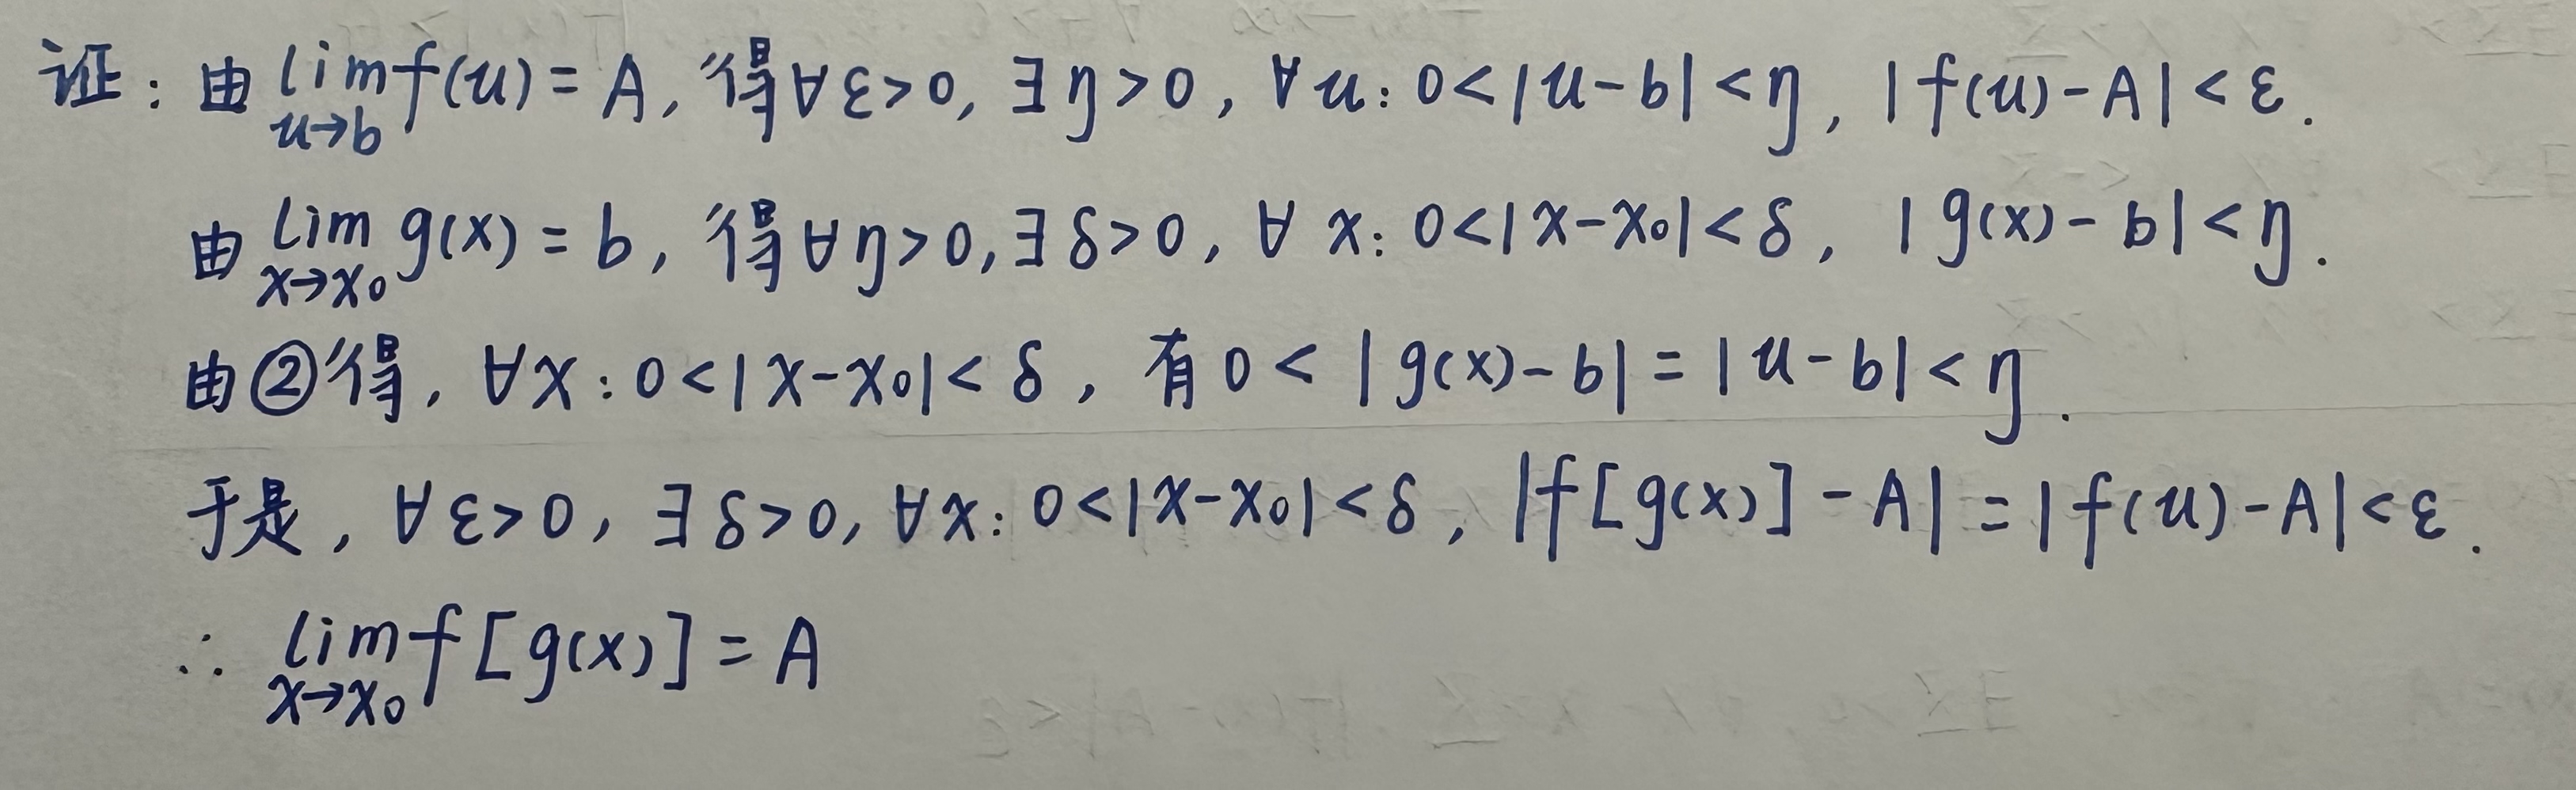 证：由 lim f(u) = A, 得∀ε>0, ∃η>0, ∀u: 0<|u-b|<η, |f(u)-A|<ε.
u→b
由 lim g(x) = b, 得∀η>0, ∃δ>0, ∀x: 0<|x-x₀|<δ, |g(x)-b|<η.
x→x₀
由②得, ∀x: 0<|x-x₀|<δ, 有0<|g(x)-b|=|u-b|<η.
于是, ∀ε>0, ∃δ>0, ∀x: 0<|x-x₀|<δ, |f[g(x)]-A|=|f(u)-A|<ε.
∴ lim f[g(x)] = A
x→x₀